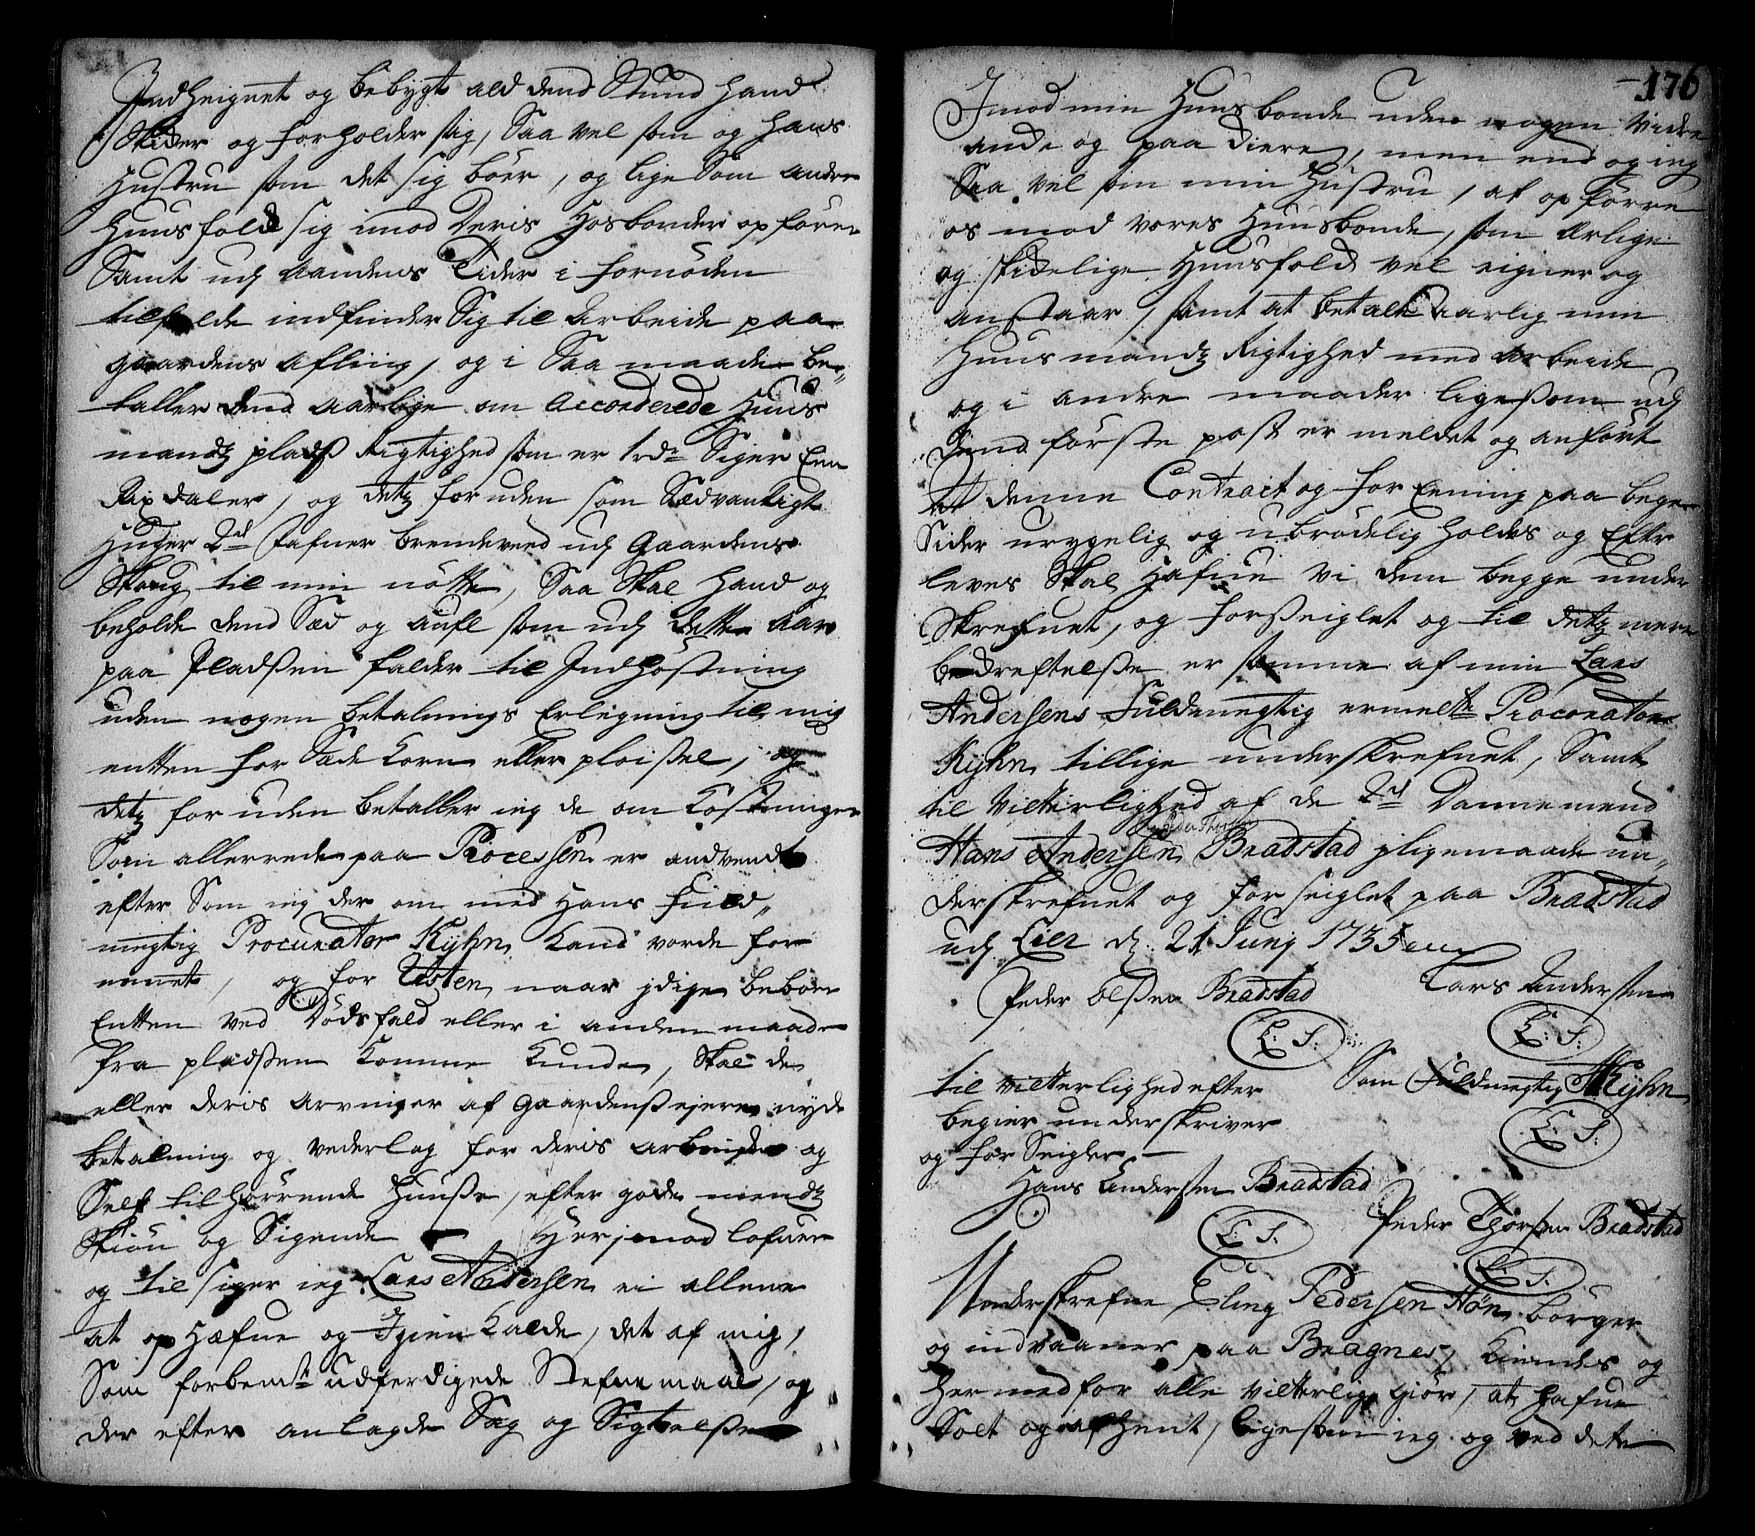 Indheignet og bebygt ald dend Stund hand
Skicker og forholder sig, Saa vel som og hans
Hustru som det sig bøer, og lige Som andre
Huusfolck sig imod Deris Hosbonder opfører
Samt udj Aandens Tider i fornøden
tilfælde indfinder Sig til Arbeide paa
gaardens Afling, og i Saa maader be-
taller dend Aarlige om Accorderede Huus
mandz pladtz Rigtighed som er 1 rdr Siger Een
Rixdaler, og detz foruden som Sædvanligt
Hugger 2de Fafner brendeveed udj Gaardens
Skoug til min nøtte, Saa Skal hand og
beholde dend Sæd og aufl som udj dette Aar
paa Pladssen falder til Indhøstning
uden nogen betalnings Erlegning til mig
entten for Sæde Korn eller ploissel, og
detz foruden betaller ieg de om Kostninger
Som allerrede paa Processen er andvendt
efter Som ieg der om med Hans Fuld-
megtig Procurator Kyhn Kand vorde for
eenet, og for Resten naar ydige beboer
Entten ved Dødsfald eller i anden maade
fra pladssen Komme Kunde, Skal de
eller deris arvinger af Gaardens ejere nyde
betalning og vederlag for deris arbeide og
Self tilhørrende Huusse, efter gode mendz
Skiøn og Sigende Herjmod lofuer
og til siger ieg Lars Andersen ei allene
at op Hæfue og Igien Kalde, det af mig,
Som forbemte udferdigede Stefnemaal, og
der efter anlagde Sag og Sigtelsse
176
Imod min Huusbonde uden nogen Vidre
ande og paa Diere, men end og ieg
Saa vel som min Hustru, at opførre
os mod vores Huusbonde, som Ærlige
og skickelige Huusfolck vel eigner og
anstaar, samt at betale Aarlig min
Huusmandz Rigtighed med arbeide
og i andre maader ligesom udj
dend første post er meldet og anført
At denne Contract og foreening paa begge
Sider urygelig og ubrødelig holdes og Efter
leves Skal Hafue Vi dem begge under
Skrefuet, og forseiglet og til detz mere
bedreftelsse er samme af min Lars
Andersens Fuldmegtig ermelte Procurator
Kyhn tillige underskrefuet, Samt
til Vitterlighed af de 2de Dannemend
Peder Thorsen
Hans Andersen Bradstad jligemaade un-
derskrefuet og forseiglet paa Bradstad
udj Lier d. 21 Juny 1735
Peder Olssen Bradstad Lars Andersen
L. S. L. S.
til vitterlighed efter Som Fuldmegtig Kyhn
begier underskriver L. S.
og for Seigler
Hans Andersen Bradstad
L. S. Peder Thorsen Bradstad
L. S.
Underskrefne Eling Pedersen Høn borger
og indvaaner paa Bragnes, Kiendes og
Her med for alle vitterlig giør, at hafue
Solt og afhent, ligesom ieg og ved dette